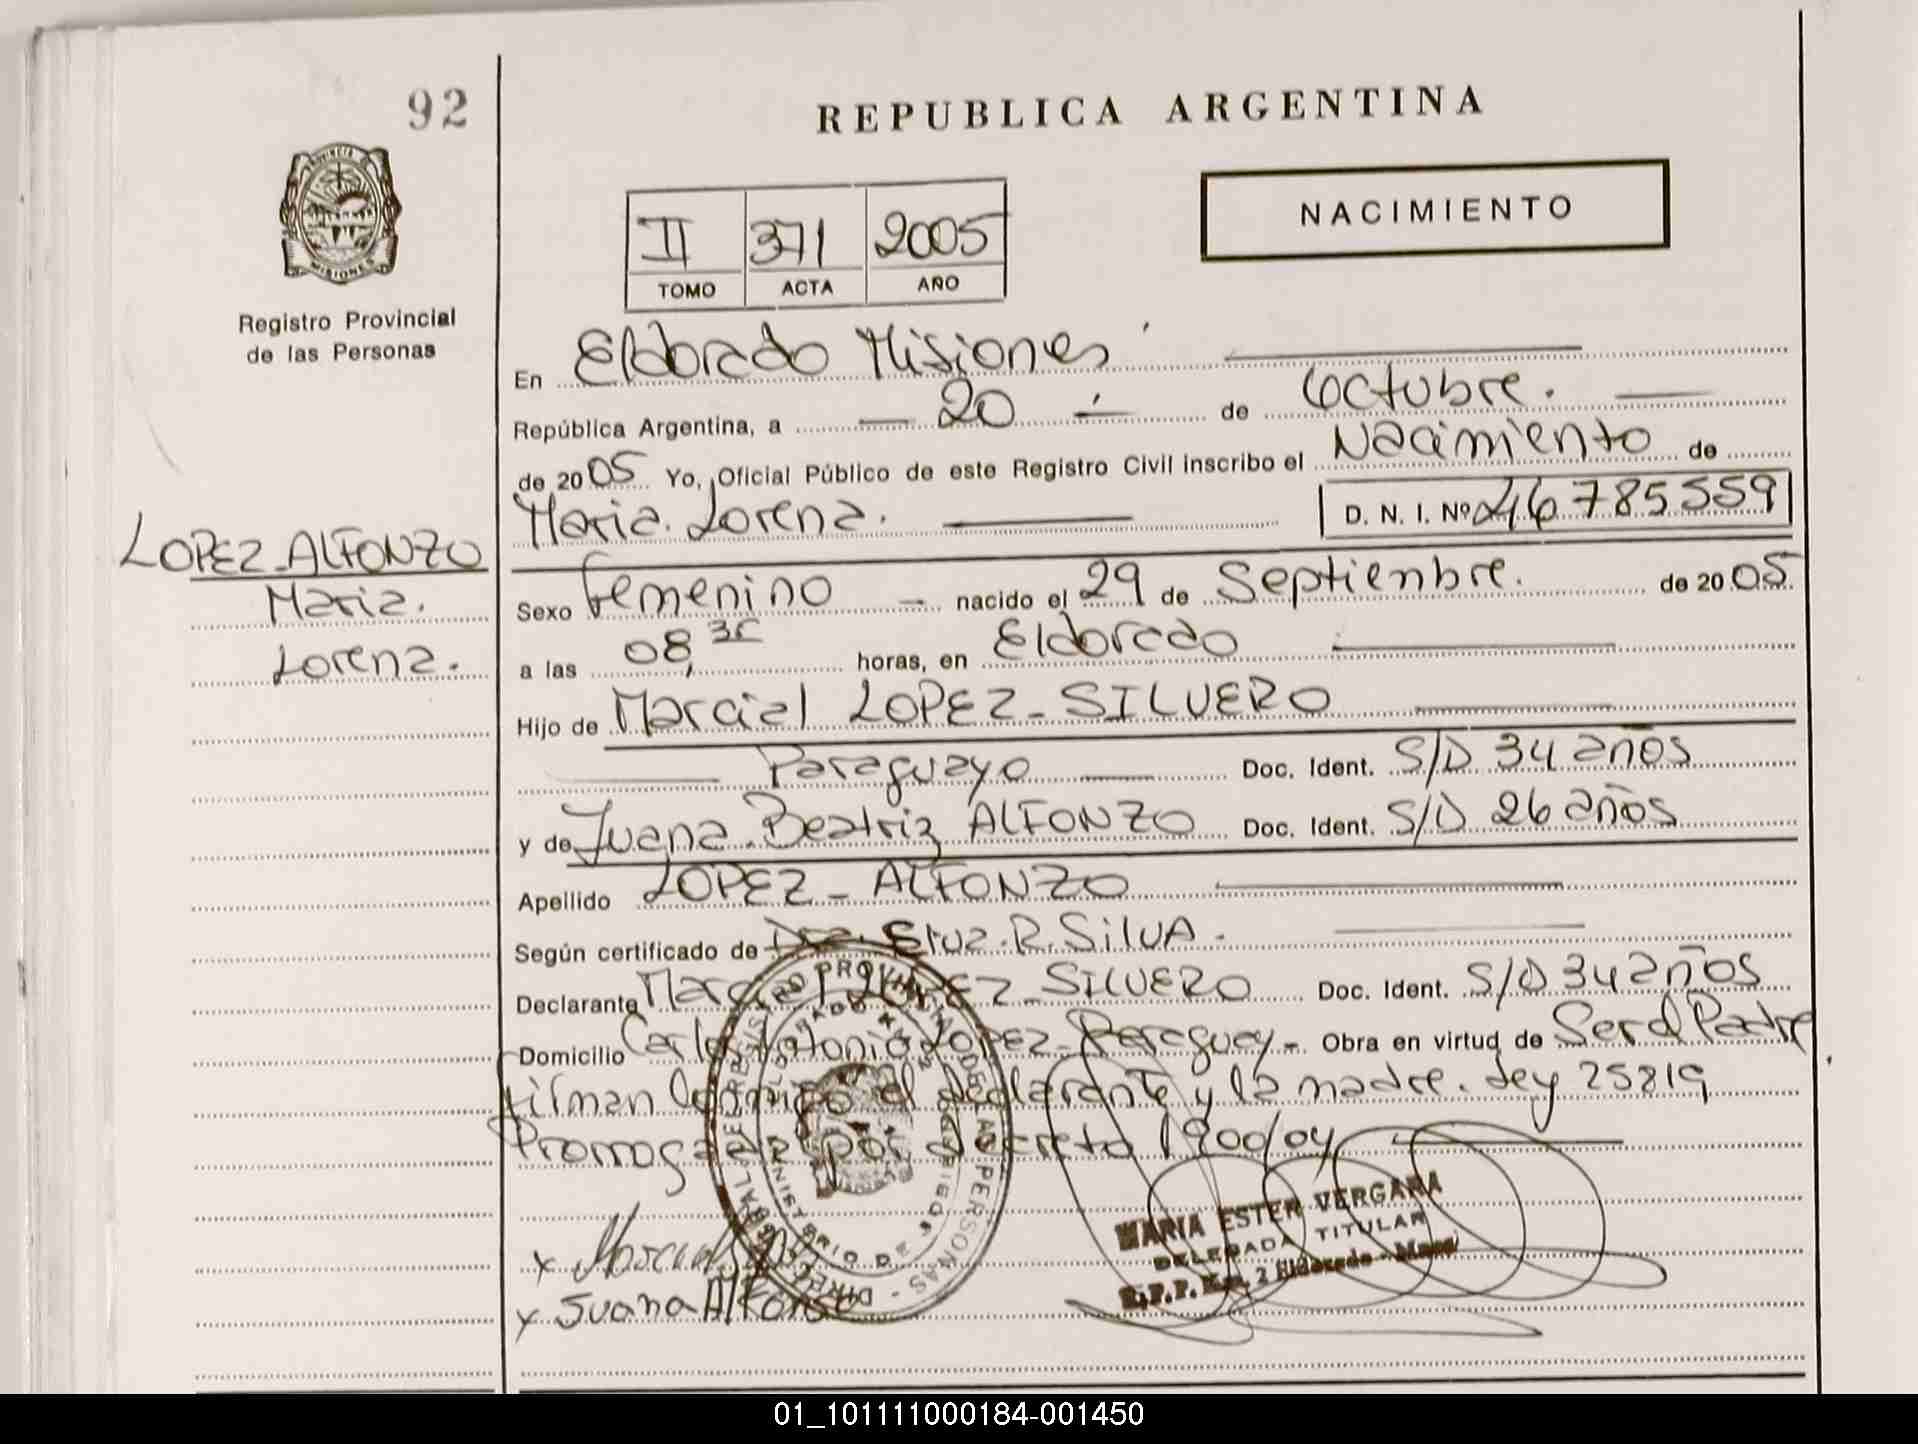 92
REPUBLICA ARGENTINA
NACIMIENTO
II 371 2005
TOMO ACTA AÑO
PROVINCIA DE MISIONES
Registro Provincial
de las Personas
En Eldorado Misiones
República Argentina, a 20 de Octubre.
de 2005 Yo, Oficial Público de este Registro Civil inscribo el Nacimiento de
Maria Lorena. D. N. I. Nº 46785559
LOPEZ-ALFONZO
Maria.
Lorena.
Sexo Femenino nacido el 29 de Septienbre. de 2005
a las 08, horas, en Eldorado
Hijo de Marcial LOPEZ-SILVERO
Paraguayo Doc. Ident. S/D 34 años
y de Juana Beatriz ALFONZO Doc. Ident. S/D 26 años
Apellido LOPEZ-ALFONZO
Según certificado de R. SILVA.
Declarante Marcial LOPEZ-SILVERO Doc. Ident. S/D 34 años
Domicilio Carlos Antonio Lopez-Paraguay- Obra en virtud de Ser el Padre
firman el declarante y la madre. Ley 25819
por decreto 1900/04
x
x Juana Alfonso
MARIA ESTER VERGARA
DELEGADA TITULAR
R.P.P. Km. 2 Eldorado - Mnes
01_101111000184-001450